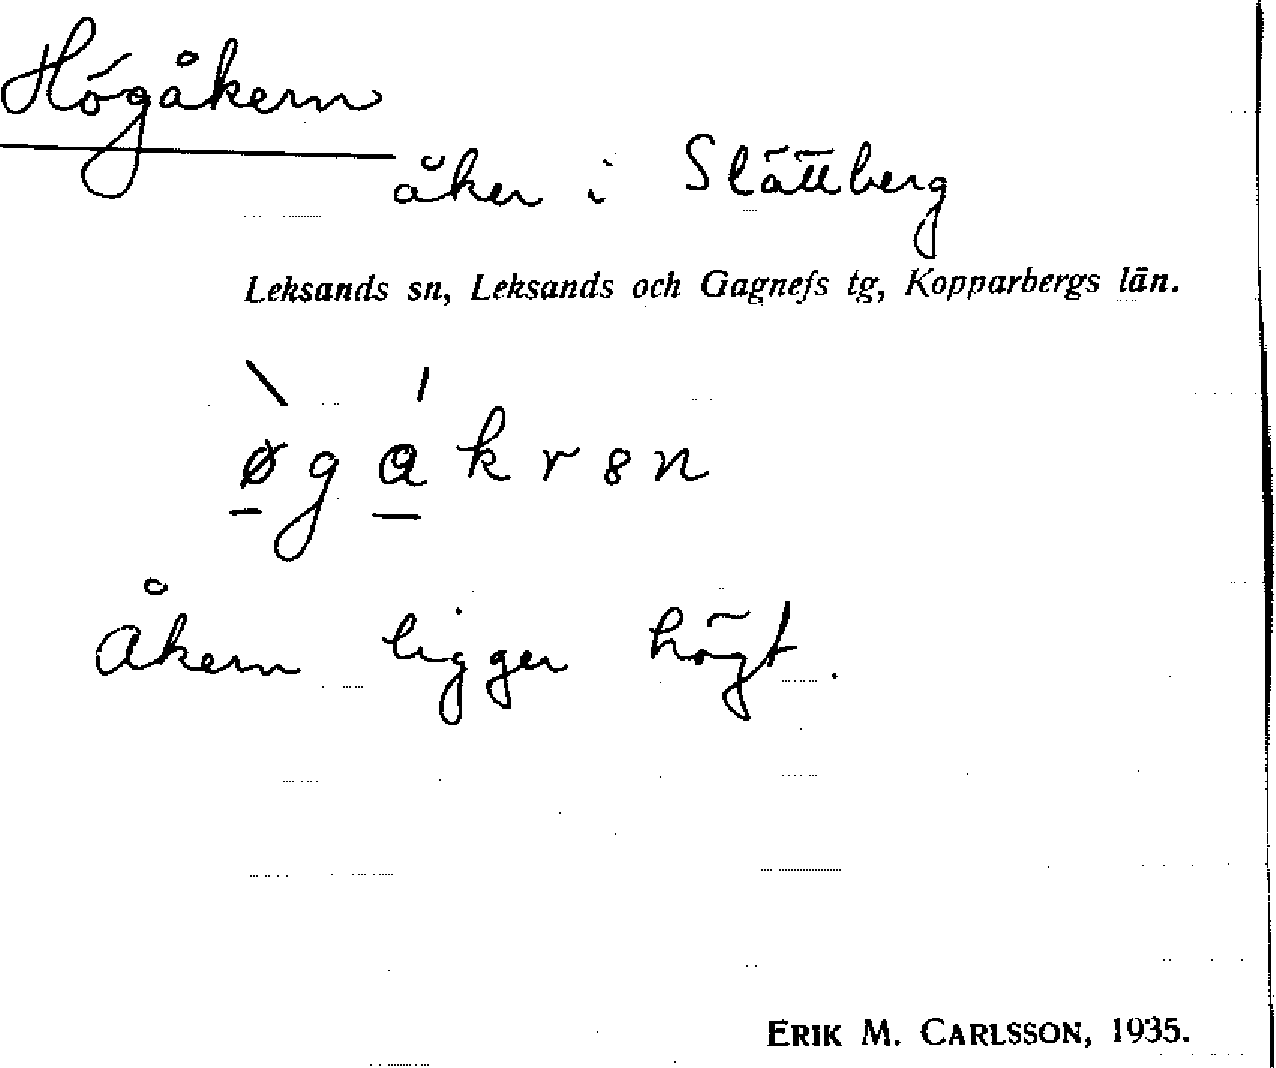 Högåkern
åker i Slättberg
Leksands sn, Leksands och Gagnefs tg, Kopparbergs län.
øgakrən
Åkern ligger högt.
ERIK M. CARLSSON, 1935.